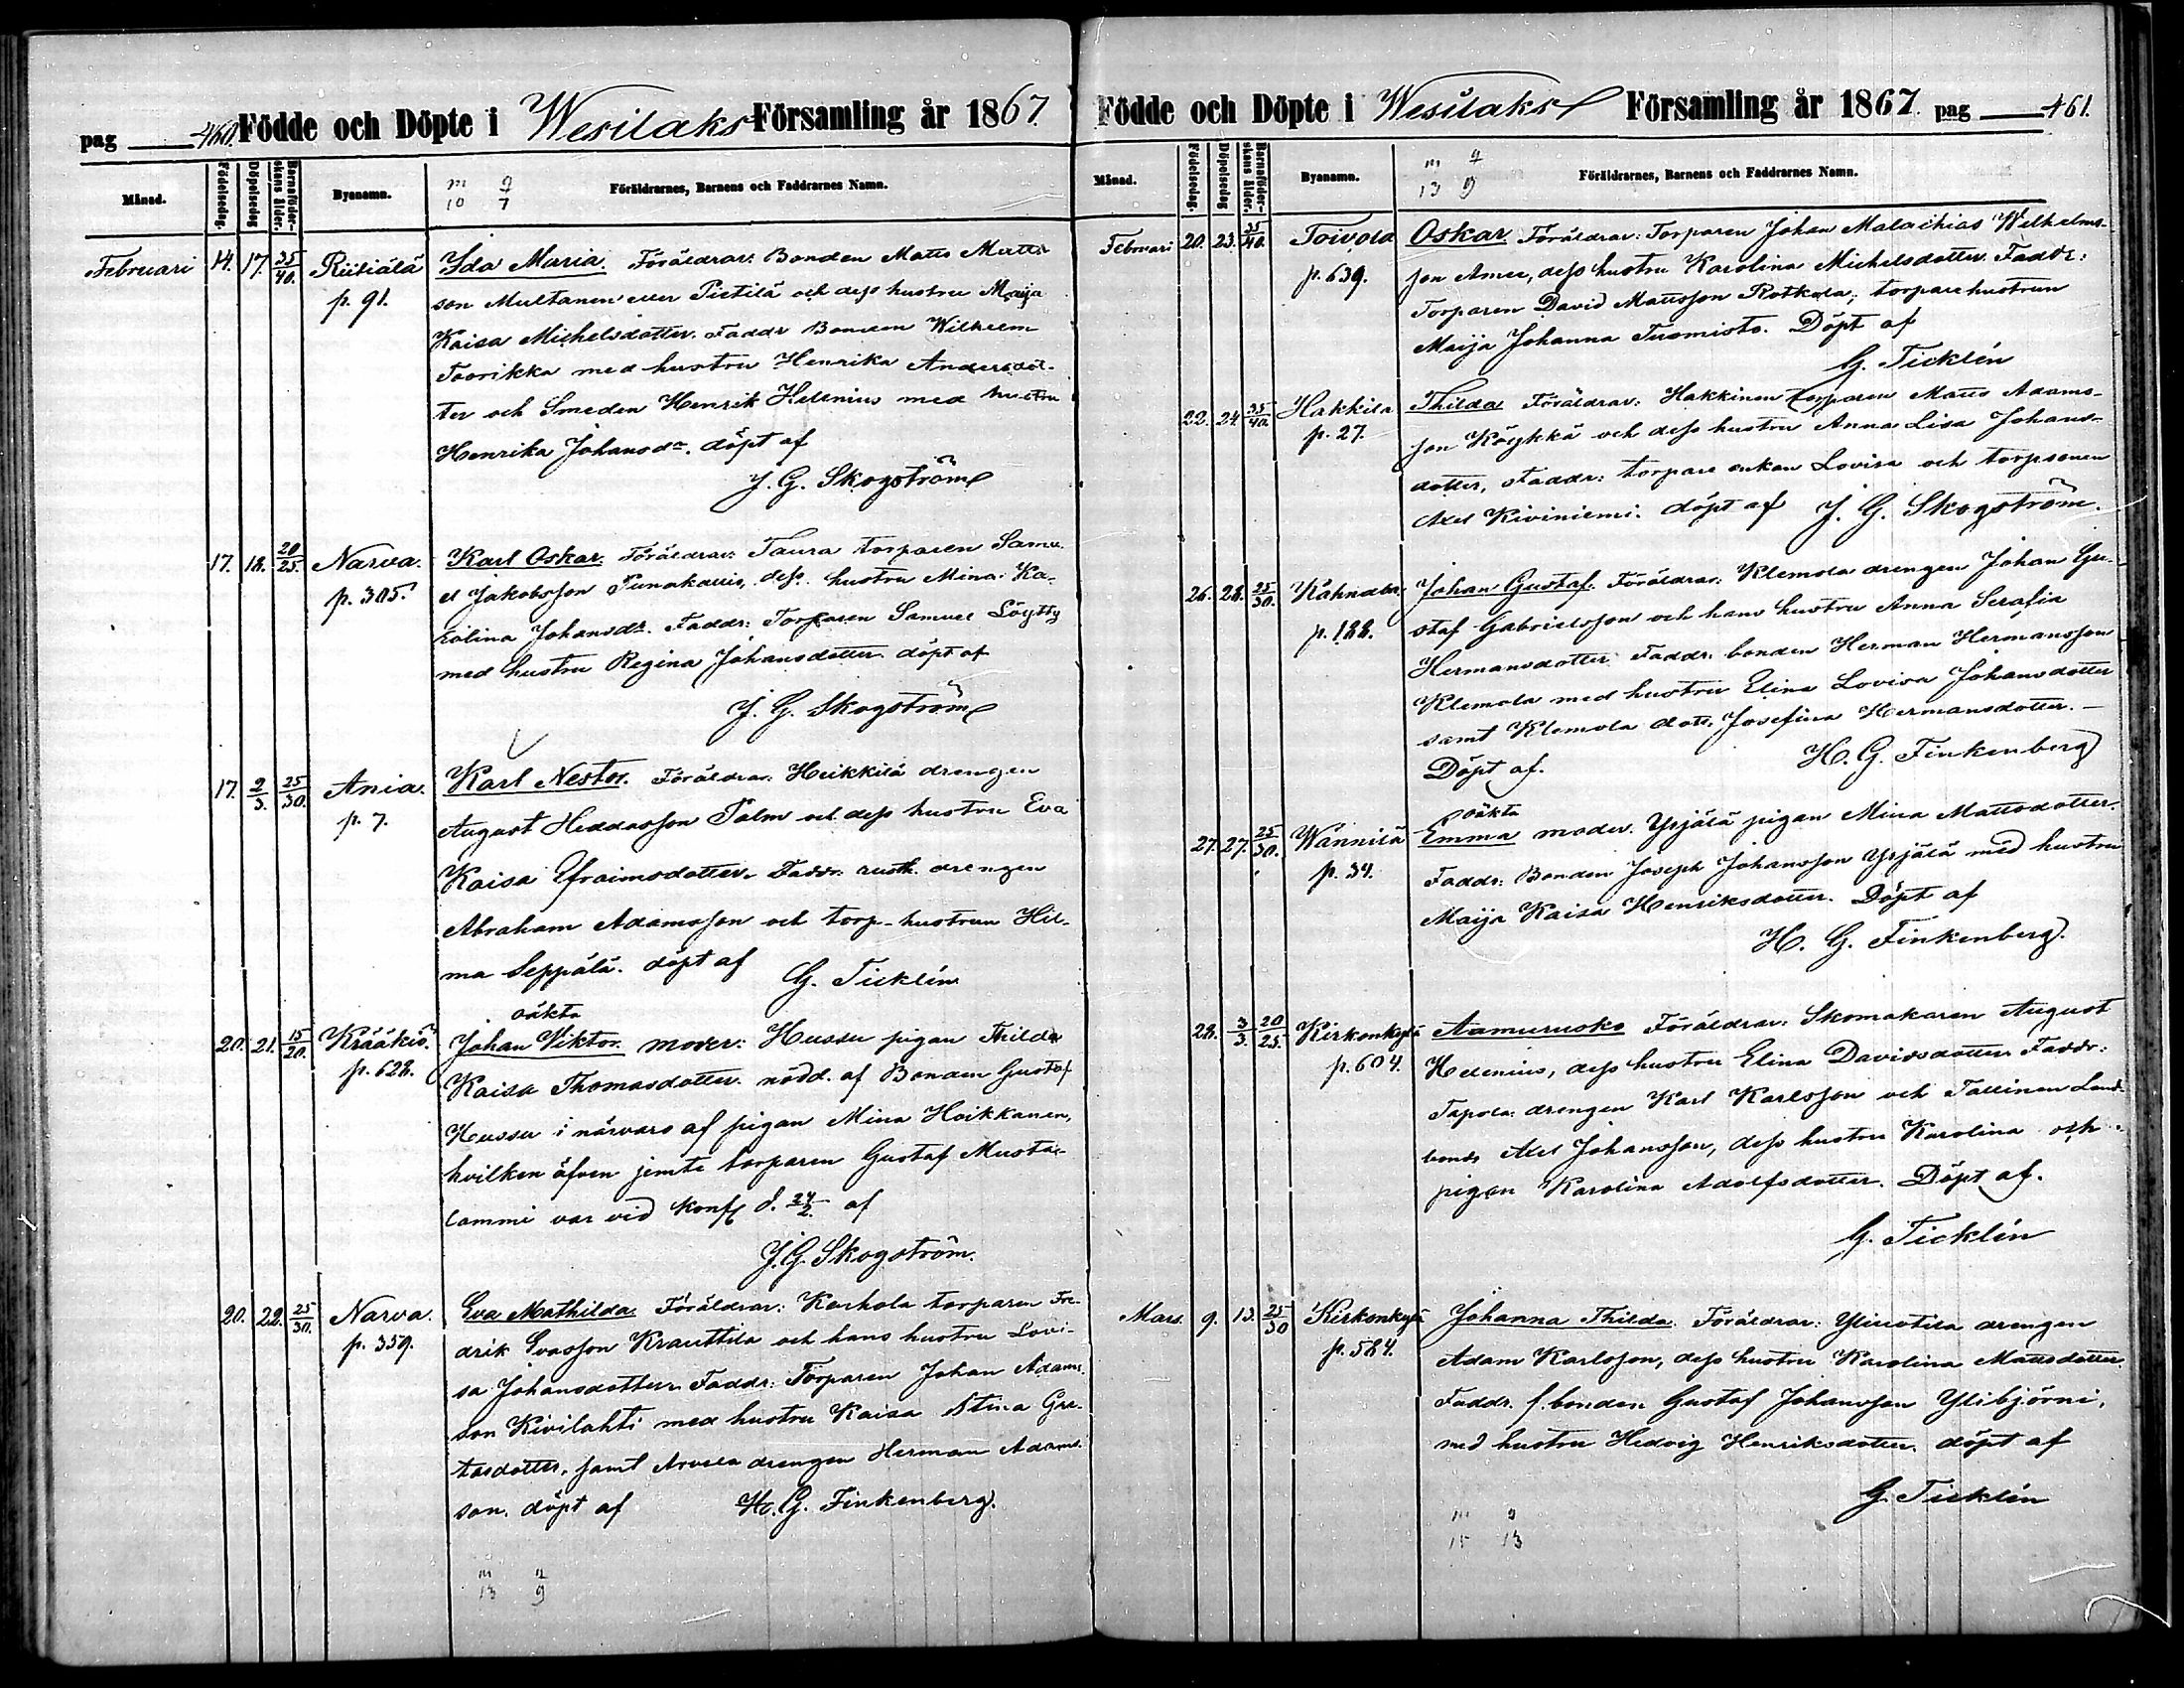 pag 460. Födde och Döpte i Wesilaks Församling år 1867.
Månad. Födelsedag. Döpelsedag Barnaföder-skans ålder. Byanamn. Föräldrarnes, Barnens och Faddrarnes Namn.
m q
10 7
Februari 14. 17. 35/40. Riitiälä Ida Maria. Föräldrar: Bonden Matts Matts-
p. 91. son Multanen eller Pietilä och dess hustru Maija
Kaisa Michelsdotter. Faddr Bonden Wilhelm
Toorikka med hustru Henrika Andersdot-
ter och Smeden Henrik Hellenius med hustru
Henrika Johansdr. döpt af
J. G. Skogström
17. 18. 20/25. Narva. Karl Oskar. Föräldrar: Taura torparen Samu-
p. 305. el Jakobsson Punakallio, dess hustru Mina Ka-
rolina Johansdr. Faddr: Torparen Samuel Löytty
med hustru Regina Johansdotter döpt af
J. G. Skogström
17. 2/3. 25/30. Ania. Karl Nestor. Föräldrar: Heikkilä drengen
p. 7. August Heddasson Palm och dess hustru Eva
Kaisa Efraimsdotter. Faddr: rusth. drengen
Abraham Adamsson och torp-hustrun Hil-
ma Seppälä. döpt af G. Ticklén
oäkta
20. 21. 15/20. Krääkiö. Johan Viktor. moder: Hussu pigan Thilda
p. 628. Kaisa Thomasdotter. nödd. af Bonden Gustaf
Hussu i närvaro af pigan Mina Hoikkanen,
hvilken äfven jemte torparen Gustaf Musta-
lammi var vid konf d. 24/2. af
J. G. Skogström.
20. 22. 25/30. Narva. Eva Mathilda. Föräldrar: Kerhola torparen Fre-
p. 359. drik Evasson Krauttila och hans hustru Lovi-
sa Johansdotter. Faddr: Torparen Johan Adams-
son Kivilahti med hustru Kaisa Stina Gre-
tasdotter, samt Arvela drengen Herman Adams-
son. döpt af H. G. Finkenberg.
m q
13 9
Födde och Döpte i Wesilaks Församling år 1867. pag 461.
Månad. Födelsedag. Döpelsedag Barnaföder-skans ålder. Byanamn. Föräldrarnes, Barnens och Faddrarnes Namn.
m q
13 9
Februari 20. 23. 35/40. Toivola Oskar Föräldrar: Torparen Johan Malachias Wilhelms-
p. 639. son Amee, dess hustru Karolina Michelsdotter. Faddr:
Torparen David Mattsson Rotkola, torparehustrun
Maija Johanna Tuomisto. Döpt af
G. Ticklén
22. 24. 35/40. Hakkila Thilda Föräldrar: Hakkinen torparen Matts Adams-
p. 27. son Köykkä och dess hustru Anna Lisa Johans-
dotter, Faddr: torpare enkan Lovisa och torpsonen
Axel Kiviniemi. döpt af J. G. Skogström.
26. 28. 25/30. Kähnälä. Johan Gustaf. Föräldrar: Klemola drengen Johan Gu-
p. 188. staf Gabrielsson och hans hustru Anna Serafia
Hermansdotter. Faddr. bonden Herman Hermansson
Klemola med hustru Elina Lovisa Johansdotter
samt Klemola dott. Josefina Hermansdotter.—
Döpt af. H. G. Finkenberg
oäkta
27. 27. 25/30. Wännilä Emma moder. Yrjälä pigan Mina Mattsdotter.
p. 34. Faddr: Bonden Joseph Johansson Yrjälä med hustru
Maija Kaisa Henriksdotter. Döpt af
H. G. Finkenberg.
28. 3/3. 20/25. Kirkonkylä Aamurusko Föräldrar: Skomakaren August
p. 604. Helenius, dess hustru Elina Davidsdotter Faddr:
Tapola drengen Karl Karlsson och Tallinen Land-
bonds Axel Johansson, dess hustru Karolina och
pigan Karolina Adolfsdotter. Döpt af.
G. Ticklén
Mars. 9. 13. 25/30 Kirkonkylä Johanna Thilda. Föräldrar: Yliuotila drengen
p. 584. Adam Karlsson, dess hustru Karolina Mattsdotter.
Faddr. f. bonden Gustaf Johansson Ylibjörni,
med hustru Hedvig Henriksdotter. döpt af
G. Ticklén
m q
15 13